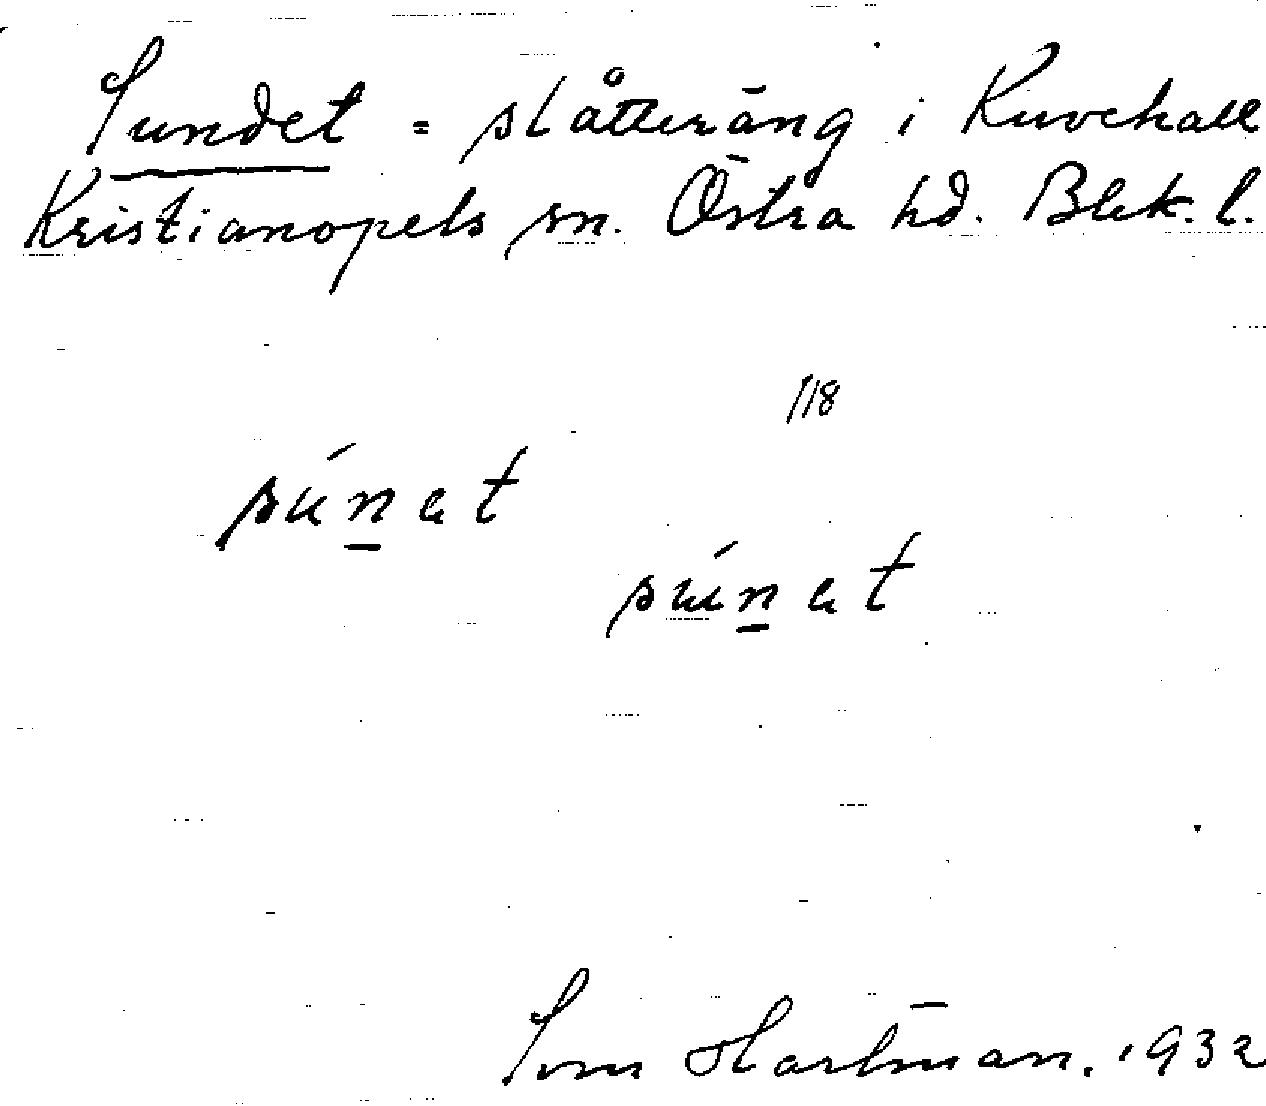 Sundet = slåtteräng i Kuvehall
Kristianopels sn. Östra hd. Blek. l.
118
súnat
súnat
Hartman. 1932